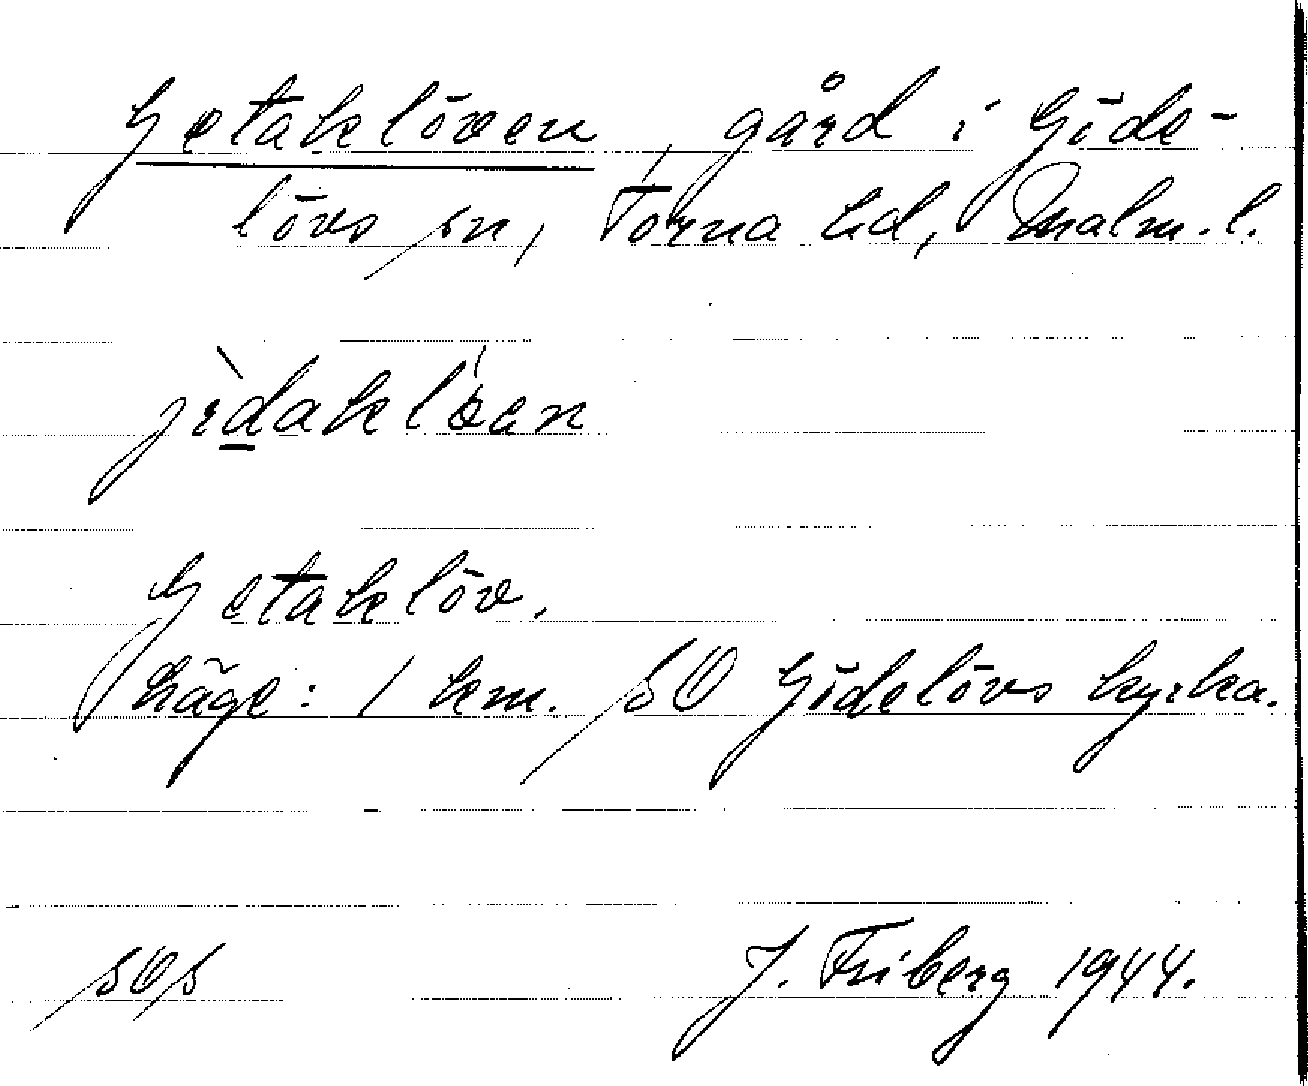 Getaklöven, gård i Göde-
lövs sn, Torna hd, Malm. l.
jìdakløen
Getaklöv.
Läge: 1 km. SO Gödelövs kyrka.
SOS J. Friberg 1944.